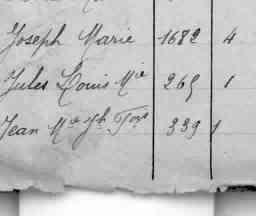 Joseph Marie 1682 4
Jules Louis Mie 265 1
Jean Mie Jh Fois 339 1